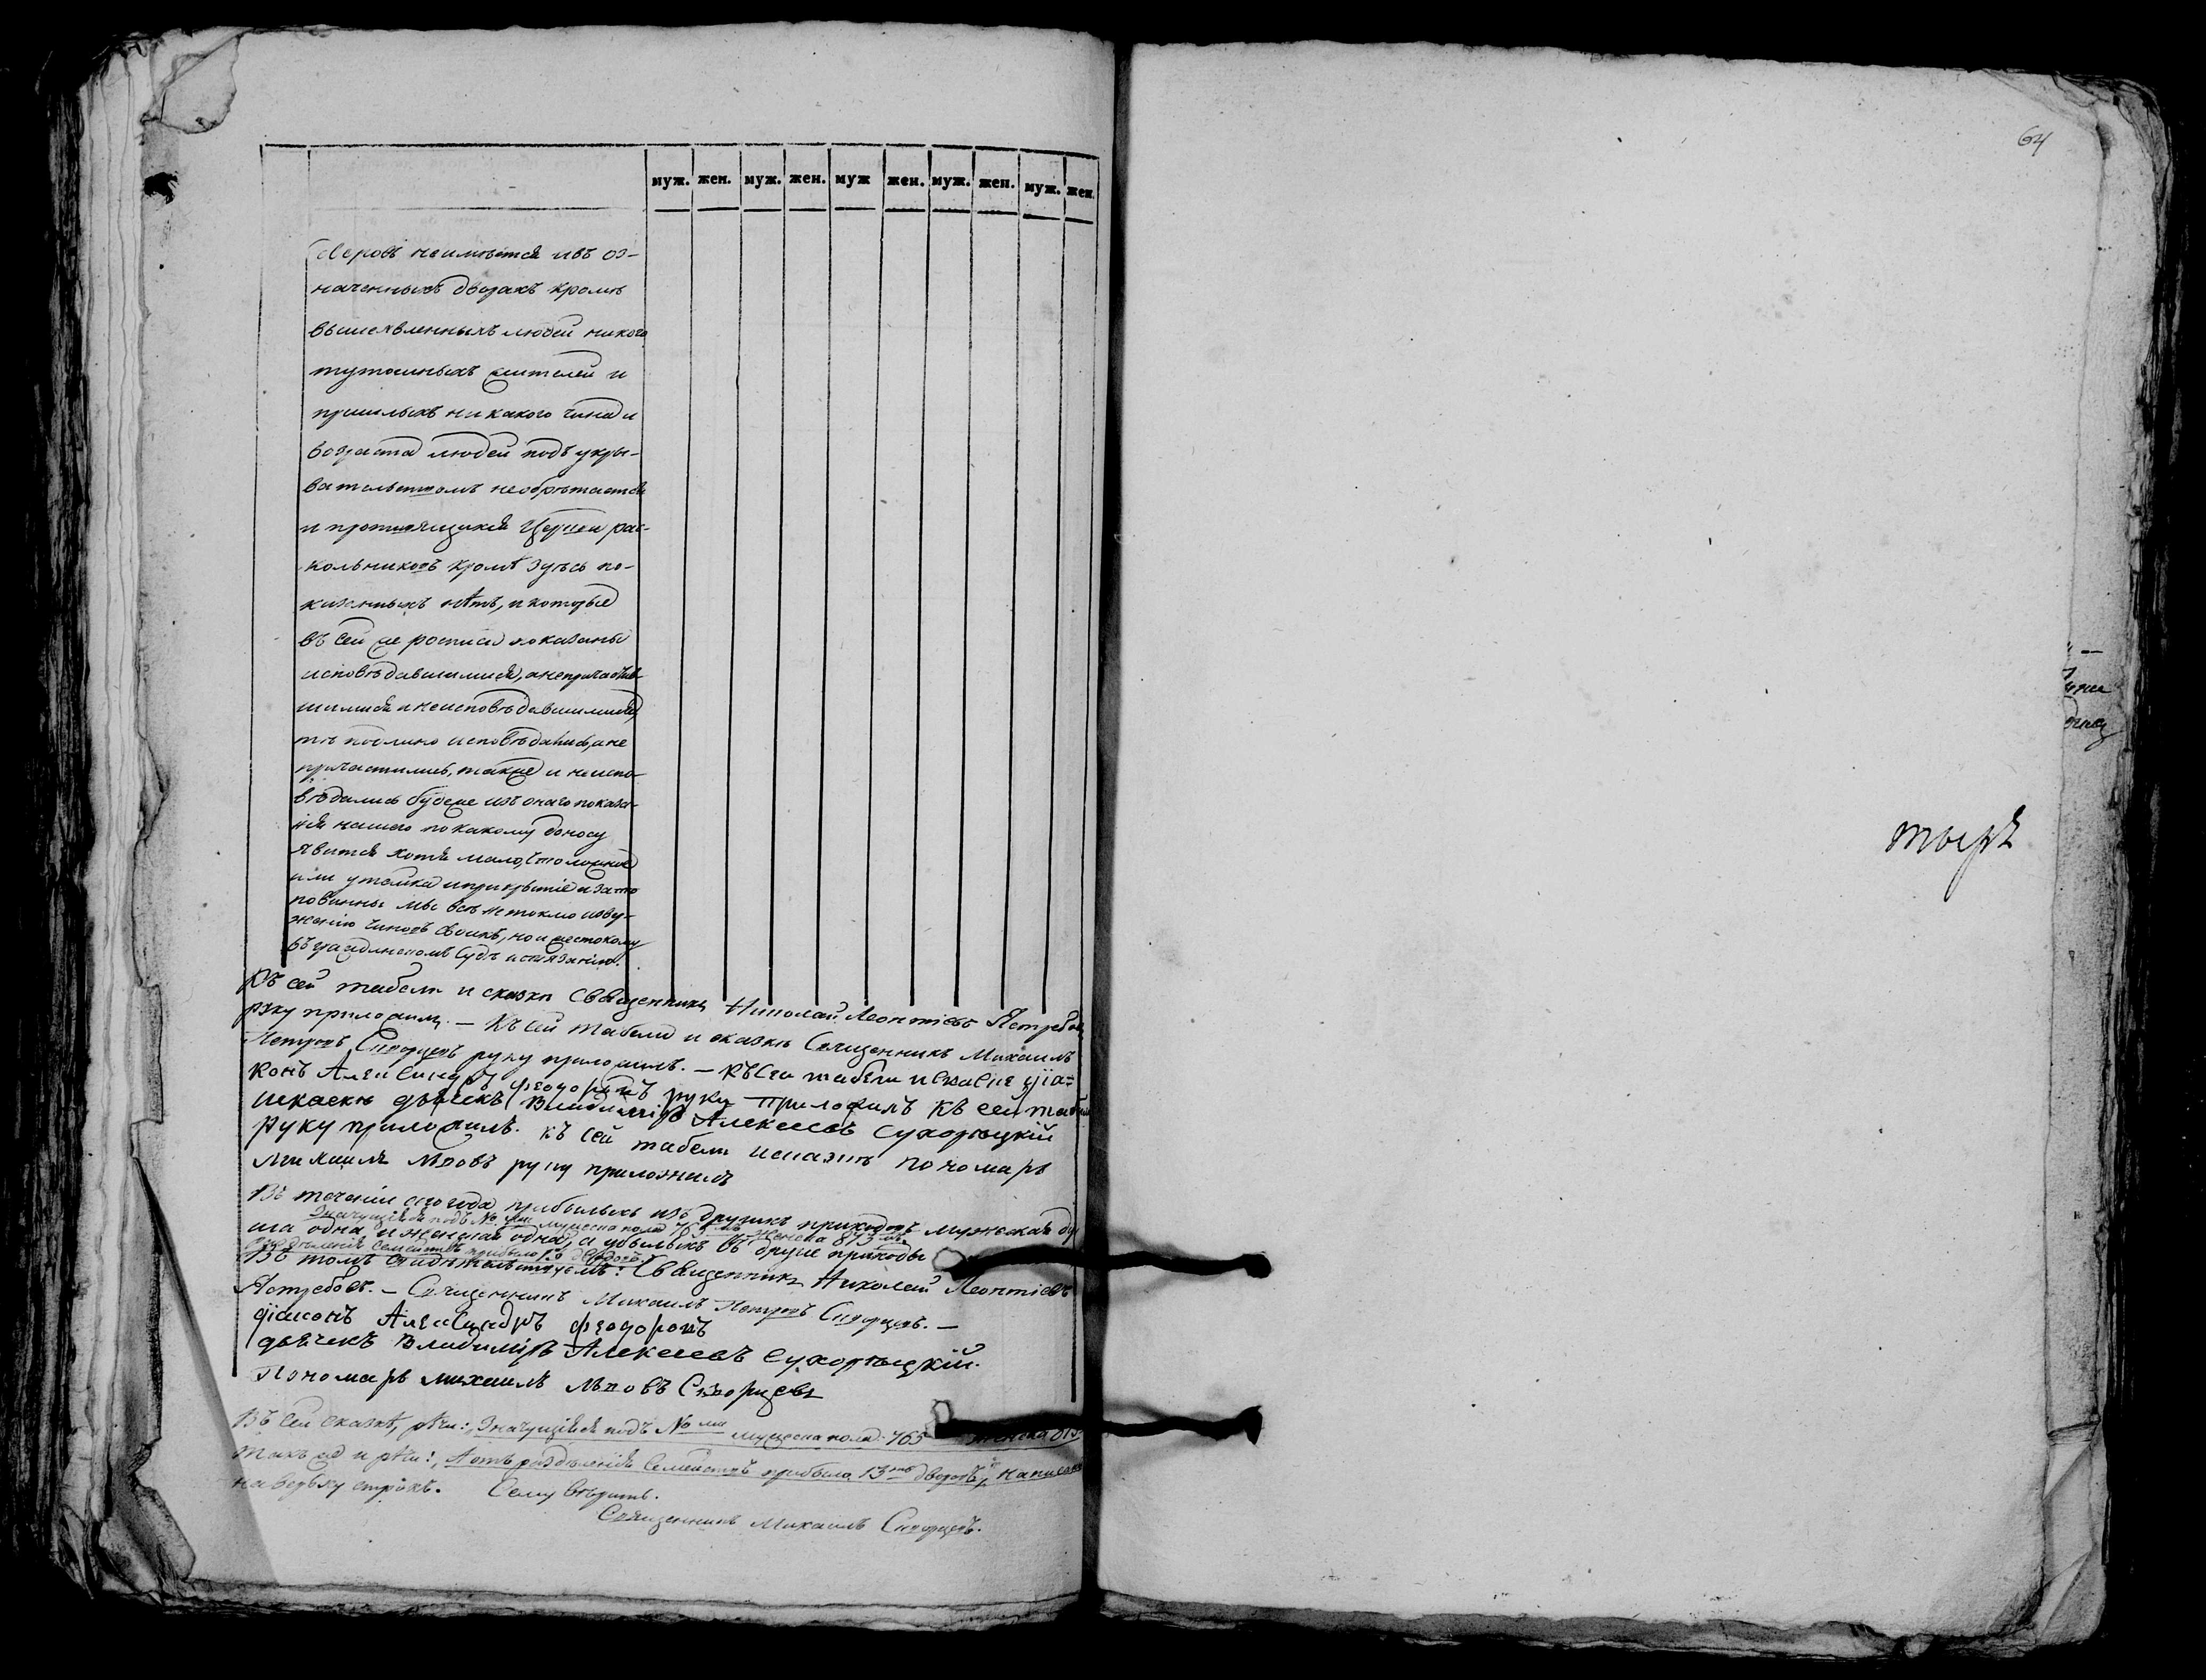 муж. жен. муж. жен. муж жен. муж. жен. муж. жен.
неимѣется ивъ оз-
наченныхъ дворахъ кромѣ
вышеявленныхъ людей никого
тутошныхъ жителей и
пришлыхъ никакого чина и
возраста людей подъ укры-
вательствомъ необрѣтается
и противящихся Церкви рас-
кольниковъ кромѣ здѣсь по-
казанныхъ нѣтъ, и которые
въ сей же росписи показаны
исповѣдавшимися, а непричастив-
шимися и неисповѣдавшимися,
тѣ исповѣдались, а не
причастились, также и неиспо-
вѣдались буде же изъ онаго показа-
нія нашего по какому доносу
явится хотя мало, что ложное
или утайка и прикрытіе и за то
повинны мы всѣ не токмо извер-
женію чиновъ своихъ, но и жестокому
въ гражданскомъ судѣ истязанію.
Къ сей табели и сказки Священникъ Николай Леонтіевъ Ястребовъ
руку приложилъ. — Къ сей табели и сказкѣ Священникъ Михаилъ
Петровъ Скворцовъ руку приложилъ. — Къ сей табели и сказке діа=
конъ Александръ Феодоровъ руку приложилъ Къ сей
искаскѣ дьячекъ Владиміръ Алексеевъ Сухорѣцкій
руку приложилъ. Къ сей табели исказкѣ пономарь
Михаилъ Львовъ руку приложилъ
Въ теченіи сего года прибылыхъ изъ другихъ приходовъ мужская ду
Значущійся подъ № мужеска пола 765 женска 873
ша одна и женская одна, а убылыхъ въ другіе приходы
раздѣленія семействъ прибыло 13 дворовъ
Въ томъ свидѣтельствуемъ: Священникъ Николай Леонтіевъ
Ястребовъ. — Священникъ Михаилъ Петровъ Скворцовъ. —
діаконъ Александръ Феодоровъ
дьячекъ Владиміръ Алексеевъ Сухорѣцкій.
Пономарь Михаилъ Львовъ Скворцевъ
Въ сей сказкѣ, рѣчи: Значущійся подъ № мужеска пола 765 женска
такъ же и рѣчи: А отъ раздѣленія семействъ прибыло 13 дворовъ, написаны
на верьху строкъ. Сему вѣрить.
Священникъ Михаилъ Скворцовъ.
64